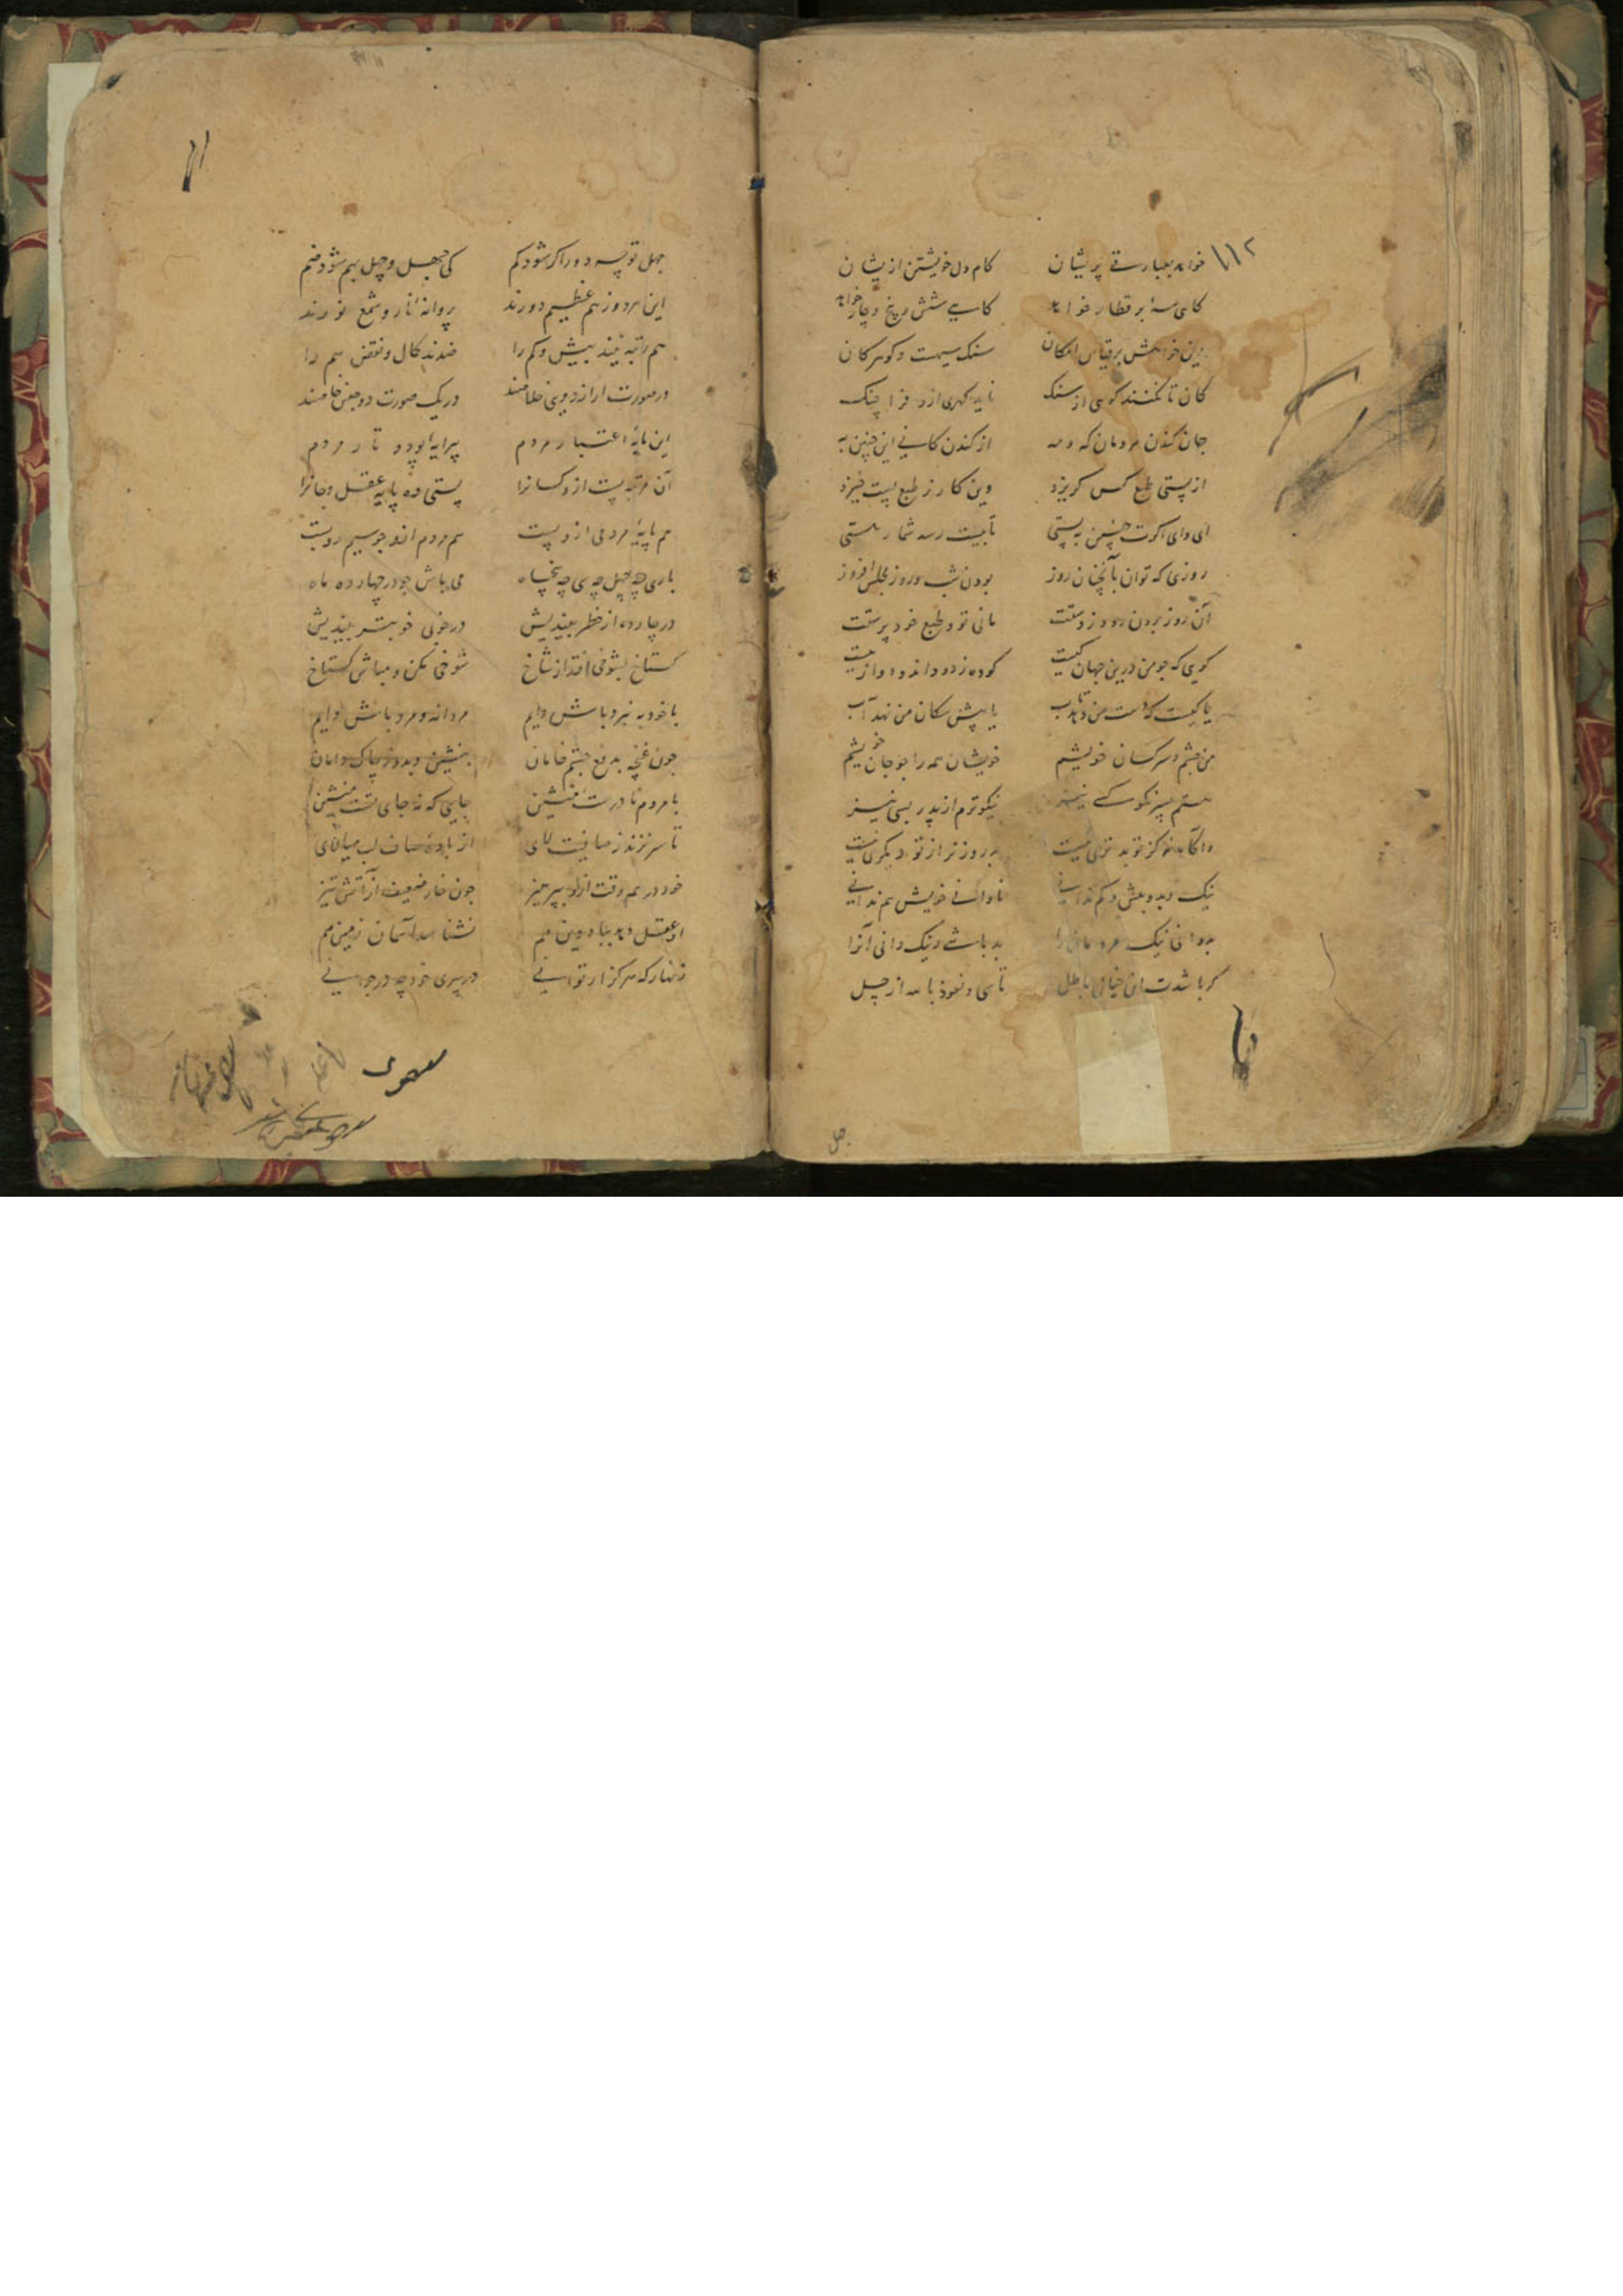 ۱۱۲
خواهد بعبارتے پریشان کام دل خویشتن ازیشان
کاهی سه بر قطار خواهد کاهیے شش و پنج و چار خواهد
وین خواهش بر قیاس امکان سنک سیهست و کوهر کان
کان تا نکنند کوهی از سنک ناید کهری ازو فرا چنک
جان کندن مردمان که و مه از کندن کانے این چنین به
از پستی طبع کس کریزد وین کار ز طبع پست خیزد
ای وای اکرت چنین به پستی تا بیست رسد شمار هستی
روزی که توان بآنچنان روز بودن شب و روز مجلس افروز
آن روز برون رود ز دستت مانی تو و طبع خود پرستت
کویی که چو من درین جهان کیست
یا کیست که دست من دهد تاب یا پیش سکان من نهد آب
من چشم و سر کسان خویشم خویشان همه را چو جان خویشم
هستم پسر نکو کسے نیز نیکوترم از پدر بسی نیز
واگاه نه کز تو بدتری نیست بد روزتر از تو دیکری نیست
نیک و بد و بیش و کم ندانے نادانے خویش هم ندانے
بد دانی نیک مردمان را بد باشے و نیک دانی آنرا
کر باشدت این خیال باطل تا سی و نعوذ بالله از چهل
چهل
چهل تو چه دور اکر شود کم کی جهل و چهل بهم شود ضم
این هر دو ز هم عظیم دورند پروانهٔ نار و شمع نورند
هم رتبه نیند بیش و کم را ضدند کمال و نقص هم را
در صورت ار از دویی خلاصند در یک صورت دو جنس خاصند
این مایهٔ اعتبار مردم پیرایهٔ پود و تار مردم
آن مرتبه پست ازو کسانرا پستی ده پایه عقل و جانرا
هم پایهٔ مردمی ازو پست هم مردم ازو چو سیم رو بست
باری چه چهل چه سی چه پنجاه می باش چو در چهارده ماه
در چارده از خطر بیندیش در خوبی خوبتر بیندیش
کستاخ بشوخی افتد از شاخ شوخی مکن و مباش کستاخ
با خود به نبرد باش دایم مردانه و مرد باش دایم
چون غنچه بدفع چشم خامان بنشین و بدوز چاک دامان
با مردم نادرست منشین جایی که نه جای تست منشین
تا سر نزند ز صافیت لای از بادهٔ صاف لب میالای
خود در همه وقت ازو بپرهیز چون خار ضعیف از آتش تیز
او عقل دهد بباد و دین هم نشناسد آسمان زمین هم
زنهار که هرکز ار توانے در پیری خود چه در جوانے